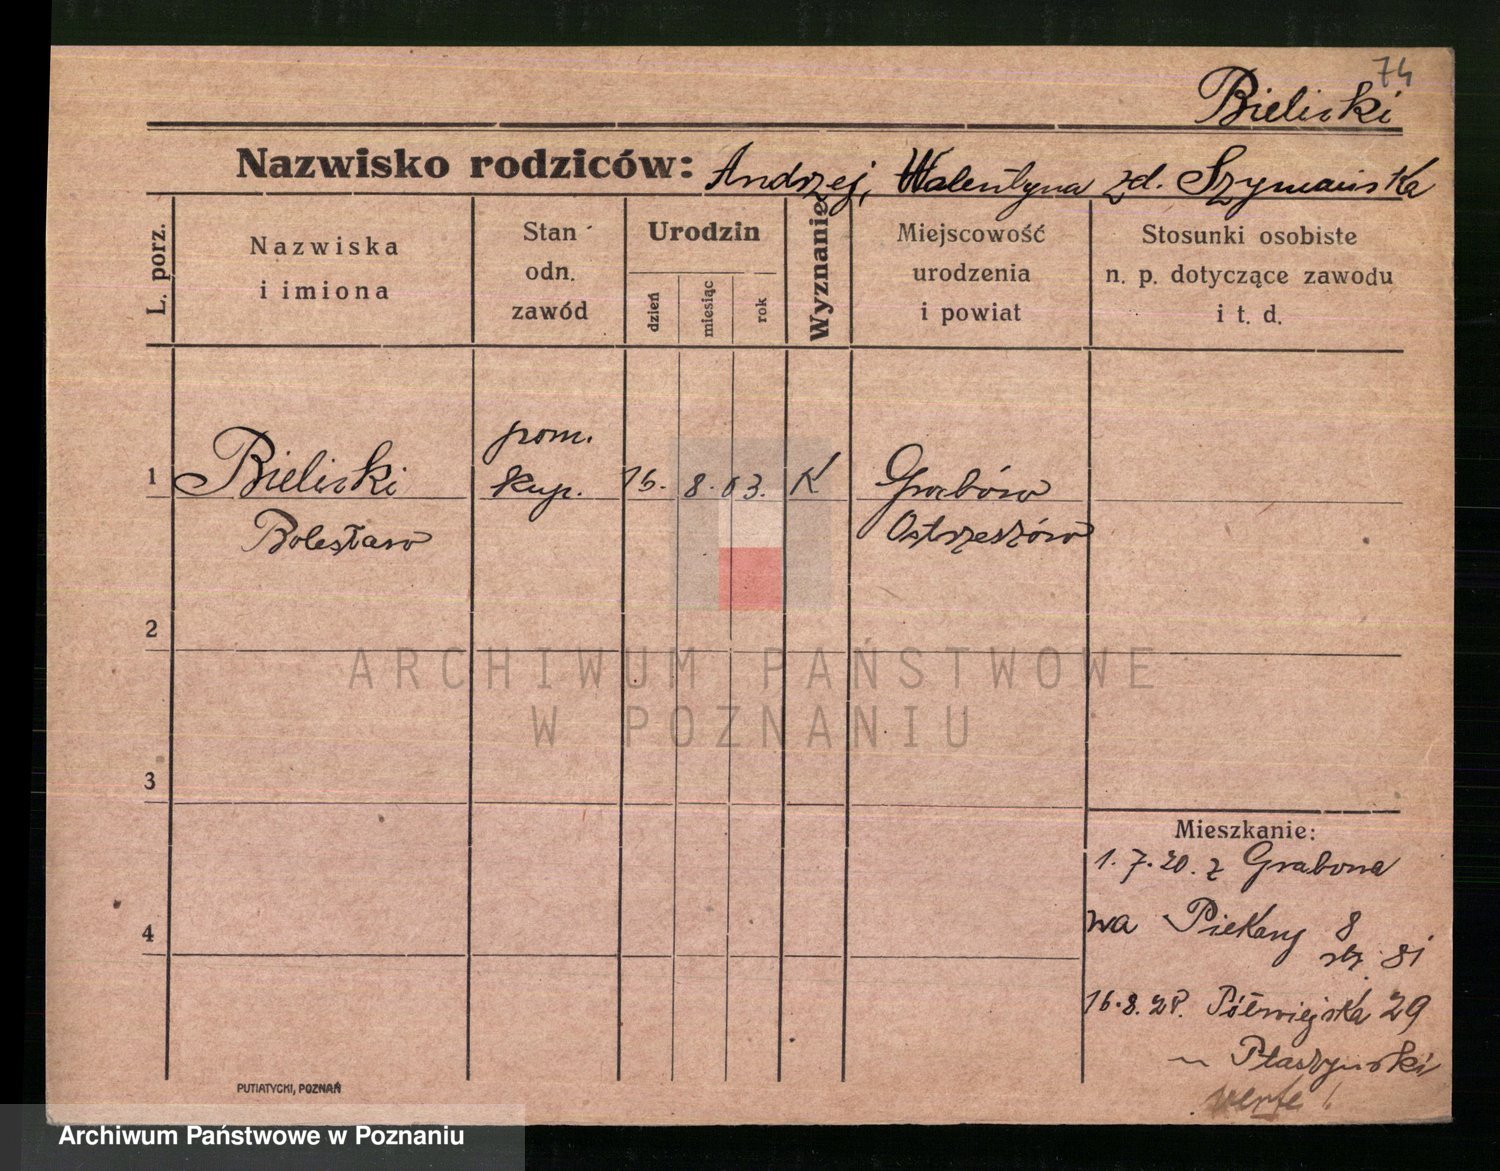 74
Bieliski
Nazwisko rodziców: Andrzej, Walentyna zd. Szymańska
L. porz.
Nazwiska
i imiona
Stan
odn.
zawód
Urodzin
dzień
miesiąc
rok
Wyznanie
Miejscowość
urodzenia
i powiat
Stosunki osobiste
n. p. dotyczące zawodu
i t. d.
1
Bieliski
Bolesław
pom.
kup.
15. 8. 03.
K
Grabów
Ostrzeszów
2
ARCHIWUM PAŃSTWOWE
W POZNANIU
3
4
Mieszkanie:
1.7.20. z Grabowa
na Piekary 8
81
16.8.28. Półwiejska 29
Ptaszyński
verte!
PUTIATYCKI, POZNAŃ
Archiwum Państwowe w Poznaniu